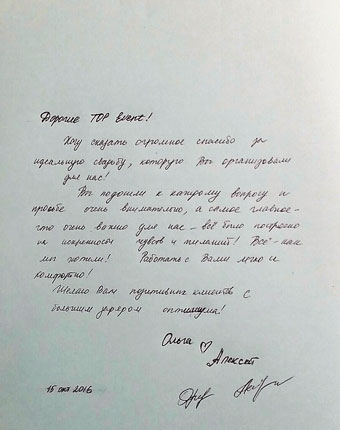 Дорогие TOP Event!
Хочу сказать огромное спасибо за
идеальную свадьбу, которую Вы организовали
для нас!
Вы подошли к каждому вопросу и
просьбе очень внимательно, а самое главное -
что очень важно для нас - всё было построено
на искренности чувств и желаний! Всё - как
мы хотели! Работать с Вами легко и
комфортно!
Желаю Вам позитивных клиентов с
большим зарядом оптимизма!
Ольга ♡
Алексей
15 окт 2016